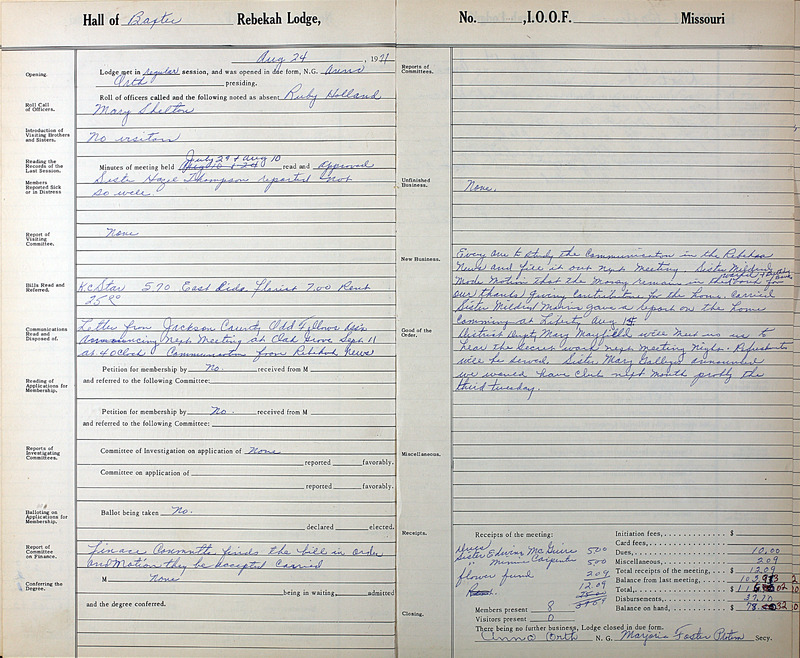 Hall of Baxter Rebekah Lodge,
Aug 24, 1971
Opening.
Lodge met in regular session, and was opened in due form, N.G. Anna
Orth presiding.
Roll Call of Officers.
Roll of officers called and the following noted as absent Ruby Holland
Mary Shelton
Introduction of Visiting Brothers and Sisters.
No visitors
Reading the Records of the Last Session.
July 29 & Aug 10
Minutes of meeting held Aug 10 & 24 read and approved
Members Reported Sick or in Distress
Sister Hazel Thompson reported not
so well
Report of Visiting Committee.
None
Bills Read and Referred.
KC Star 5.70 East Side florist 7.00 Rent
25.00
Communications Read and Disposed of.
Letter from Jackson County Odd Fellows Ass'n
announcing next Meeting at Oak Grove Sept 11
at 4 oclock Communication from Rebekah News
Reading of Applications for Membership.
Petition for membership by No. received from M
and referred to the following Committee:
Petition for membership by No. received from M
and referred to the following Committee:
Reports of Investigating Committees.
Committee of Investigation on application of None
reported favorably.
Committee on application of
reported favorably.
Balloting on Applications for Membership.
Ballot being taken No.
declared elected.
Report of Committee on Finance.
Finace Committe finds the bill in order
and Motion they be accepted Carried
Conferring the Degree.
M None
being in waiting, admitted
and the degree conferred.
No. , I.O.O.F. Missouri
Reports of Committees.
Unfinished Business.
None.
New Business.
Every one to study the Communication in the Rebekah
News and fill it out next Meeting. Sister Mildred
Made Motion that the Money remain in the for
our thanks giving Contribution for the home. Carried
Sister Mildred gave a report on the home
Comming at Liberty Aug 1st.
Good of the Order.
District Dept Mary May will meet us to
read the Secret work next meeting Night. Refreshments
will be served. Sister Mary announced
we would have Club next month probly the
third tuesday.
Miscellaneous.
Receipts.
Receipts of the meeting:
Dues
Sister Edwina McGuire 5.00
" Minnie Carpenter 5.00
flower fund 2.09
12.09
Initiation fees, $
Card fees,
Dues, 10.00
Miscellaneous, 2.09
Total receipts of the meeting, $ 12.09
Balance from last meeting,
Total, $
Disbursements, 37.70
Balance on hand, $
Members present 8
Visitors present 0
Closing.
There being no further business, Lodge closed in due form.
Anna Orth N. G. Marjorie Foster Protem Secy.